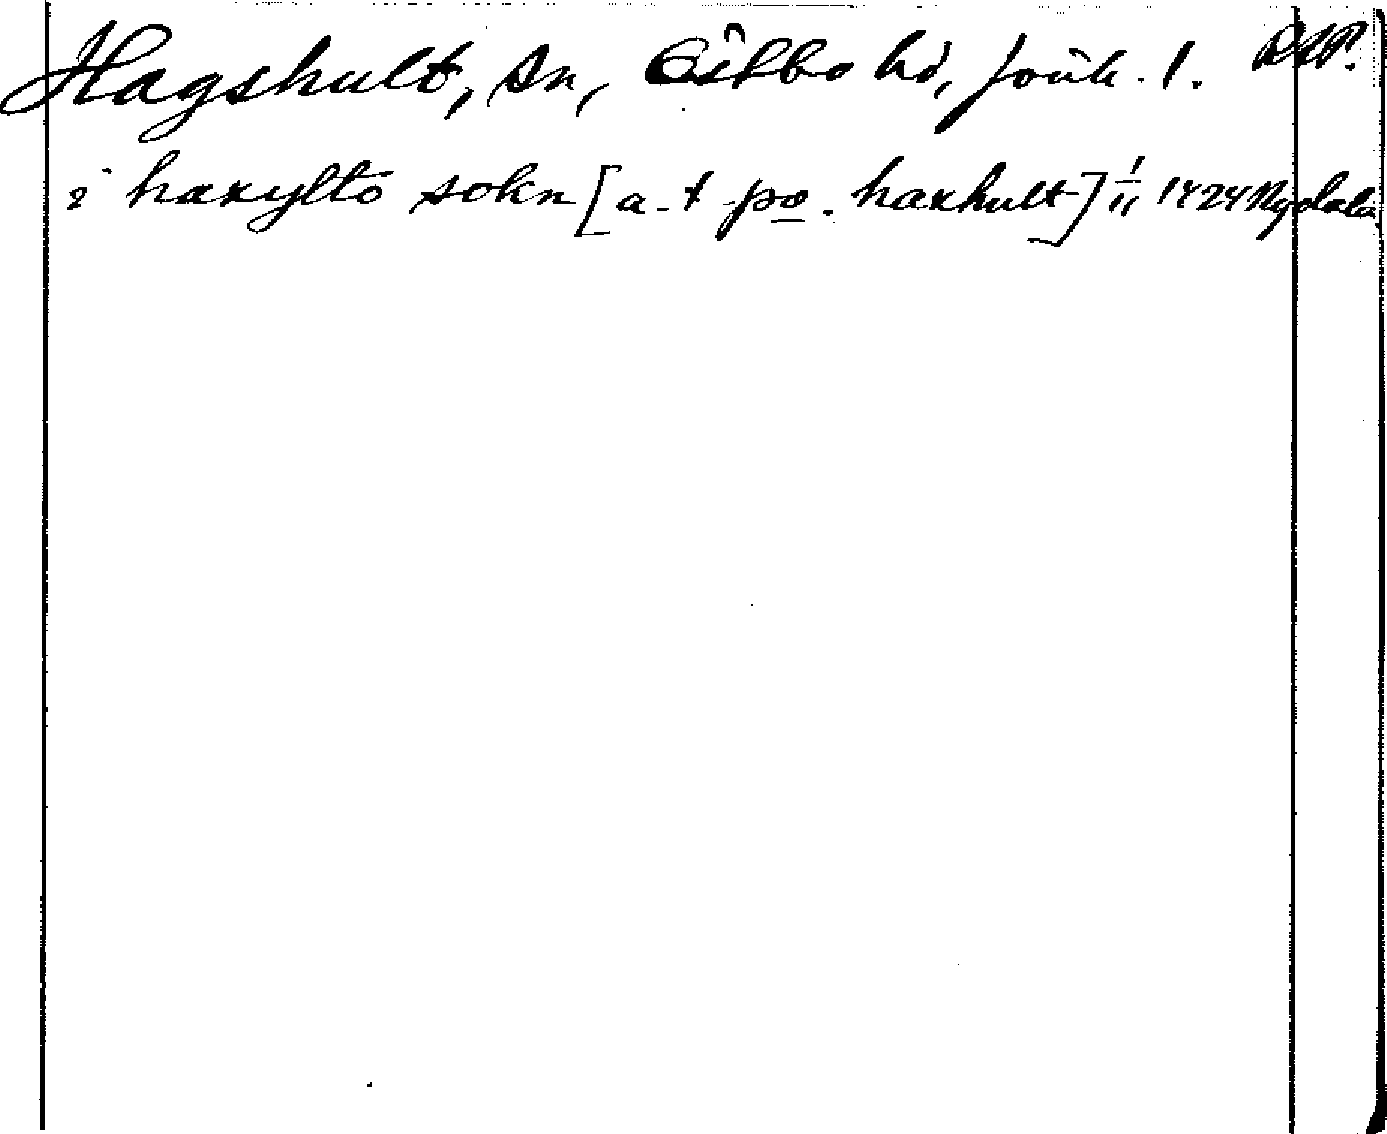 Hagshult, sn, Östbo hd, Jönk. l. RAP.
i haxylto sokn [a-t po. haxhult] 1/11 1424 Nydala